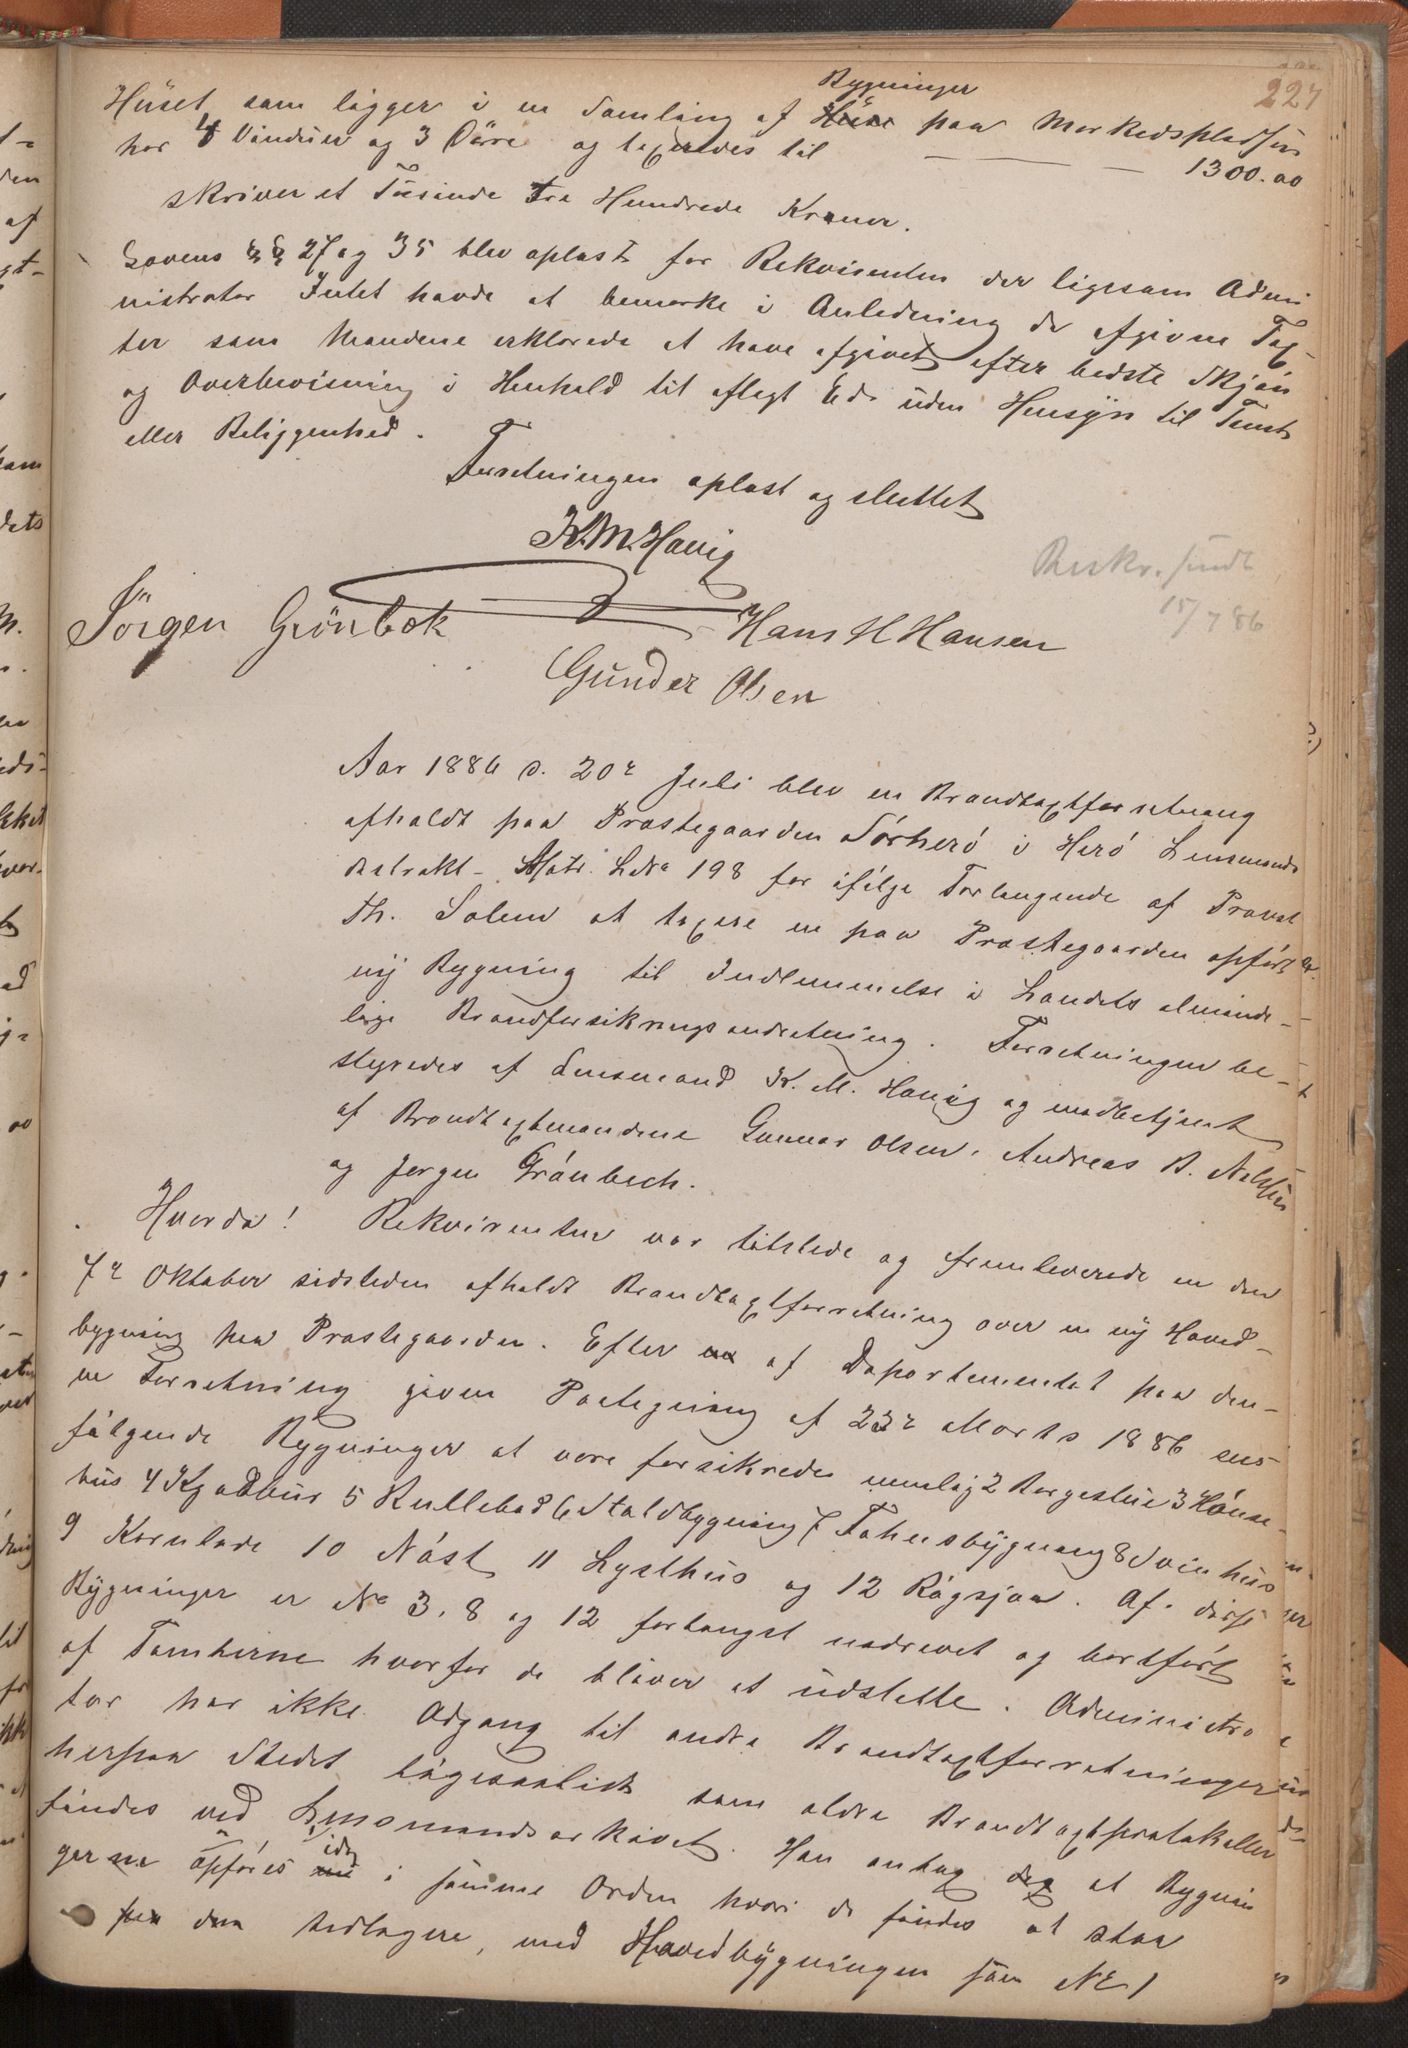 227
Bygninger
Huset som ligger i en Samling af Huse paa Markedspladsen
har 4 Vinduer og 3 Dörre og taxeredes til — — 1300.00
skriver et Tusinde Tre Hundrede Kroner.
Lovens §§ 27 og 35 blev oplæst for Rekvirenten der ligesom Admi
nistrator Intet havde at bemærke i Anledning de afgivne Tax
ter som Mændene erklærede at have afgivet efter bedste Skjön
og Overbevisning i Henhold til aflagt Ed uden Hensyn til Tomt
eller Beliggenhed.
Forretningen oplæst og sluttet
K.M. Havig
Bekr. sendt
15/7 86
Jörgen Grönbek Hans H Hansen
Gunder Olsen
Aar 1886 d. 20de Juli blev en Brandtaxtforretning
afholdt paa Præstegaarden Sörherö i Herö Lensmands
distrikt - Matr. L No 198 for ifölge Forlangende af Provst
Th. Solem at taxere en paa Præstegaarden opfört
ny Bygning til Indlemmelse i Landets alminde-
lige Brandforsikringsindretning. Forretningen be-
styredes af Lensmand K. M. Havig og medbetjent
af Brandtaxtmændene Gunnar Olsen, Andreas B.
og Jörgen Grönbech.
Hvorda! Rekvirenten var tilstede og fremleverede en den
7de Oktober sidstleden afholdt Brandtaxtforretning over en ny Hoved-
bygning paa Præstegaarden. Efter en af Departementet paa den-
ne Forretning given Paategning af 23de Marts 1886 sees
fölgende Bygninger at være forsikrede nemlig 2 Borgestue 3 Hönse-
hus 4 Kjødbur 5 Rullebod 6 Staldbygning 7 Fæhusbygning 8 Svinhus
9 Kornlade 10 Nöst 11 Lysthus og 12 Rögsjaa. Af disse
Bygninger er No 3, 8 og 12 forlængst nedrevet og bortfört
af Tomterne hvorfor de bliver at udslette. Administra
tor har ikke Adgang til andre Brandtaxtforretninger
herpaa Stedet ligesaalidt som ældre Brandtaxtprotokoller
findes ved Lensmandsarkivet. Han antog dog at Bygnin
gerne opföres idag i samme Orden hvori de findes at staa
paa den tidligere, med Hovedbygningen som No 1